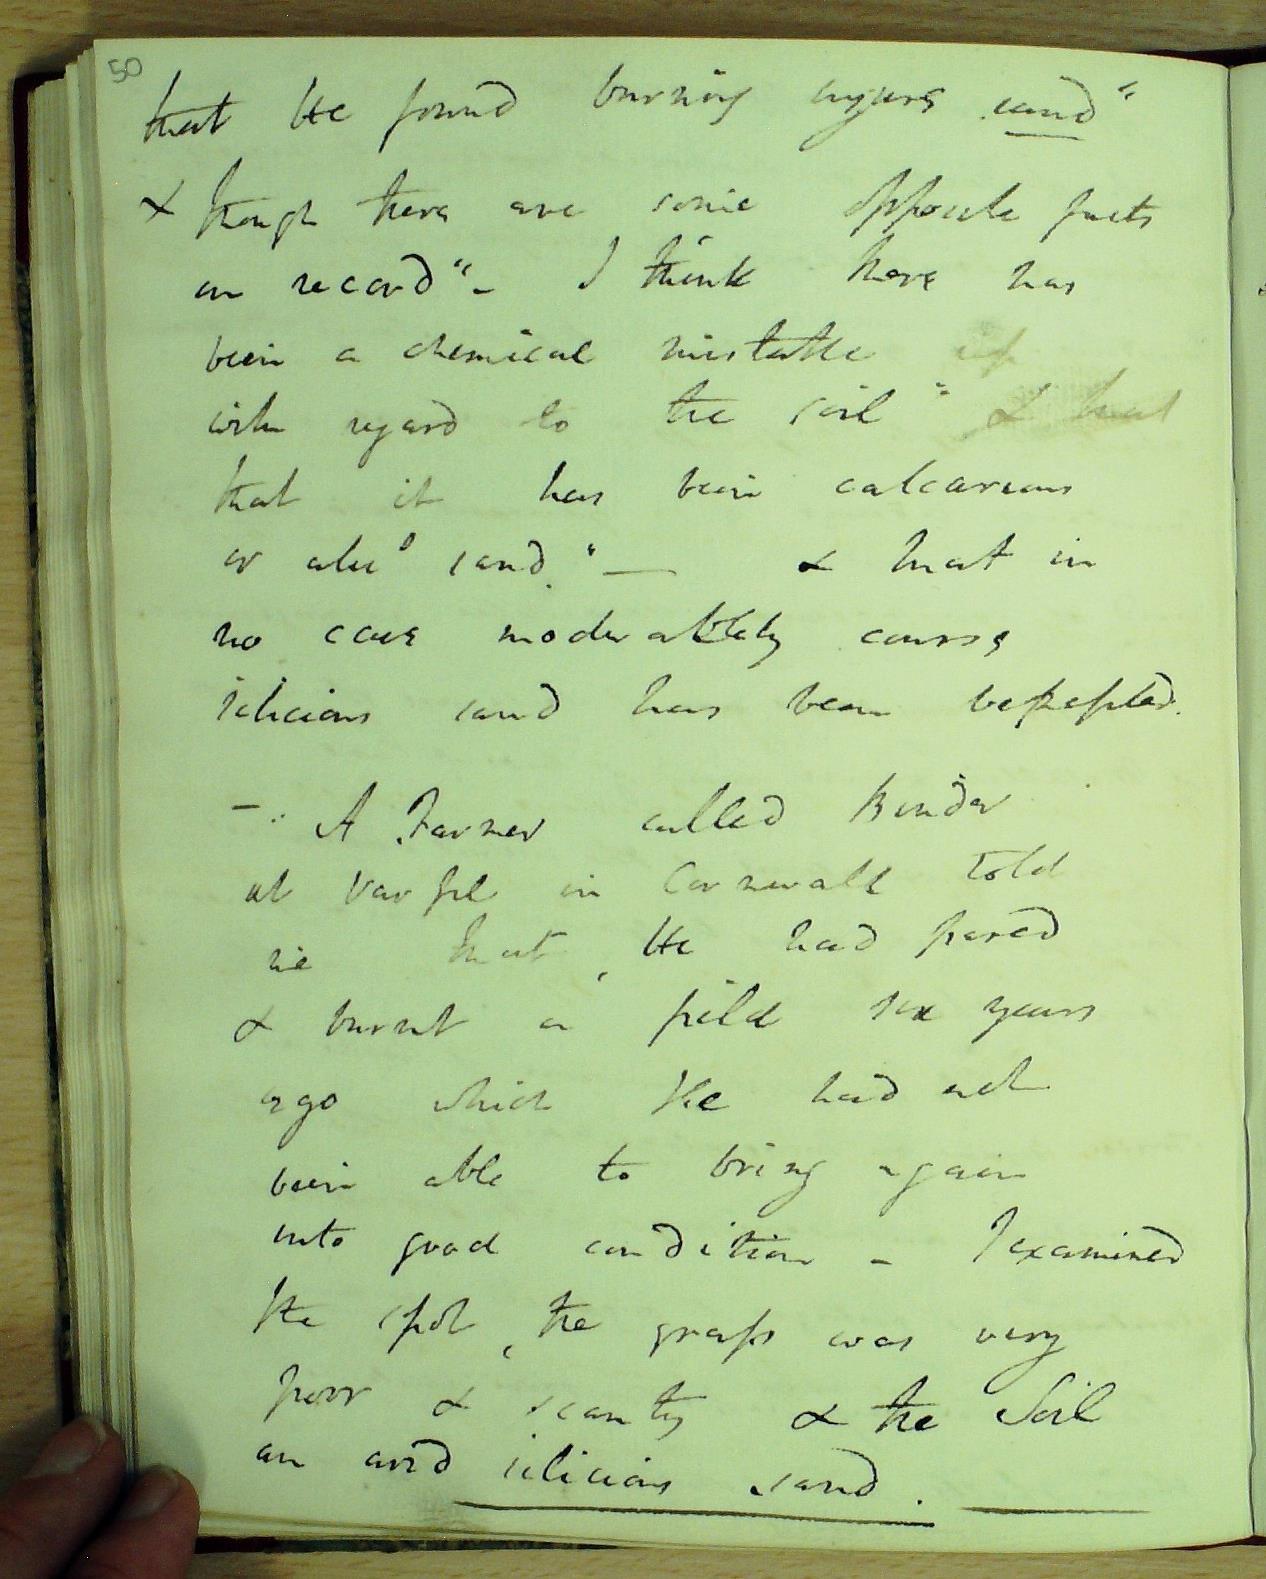 50
that He found burning injure sand"
& though there are some opposite facts
on record" - I think there has
been a chemical mistake
with regard to the soil" & that
that it has been calcareous
or alud sand." — & that in
no case moderately coarse
silicious sand has been
-" A Farmer called Binder
at Varfel in Cornwall told
me that, He had pared
& burnt a field six years
ago which He had not
been able to bring again
into good condition - I examined
the spot, the grass was very
poor & scanty & the Soil
an arid silicious sand. —